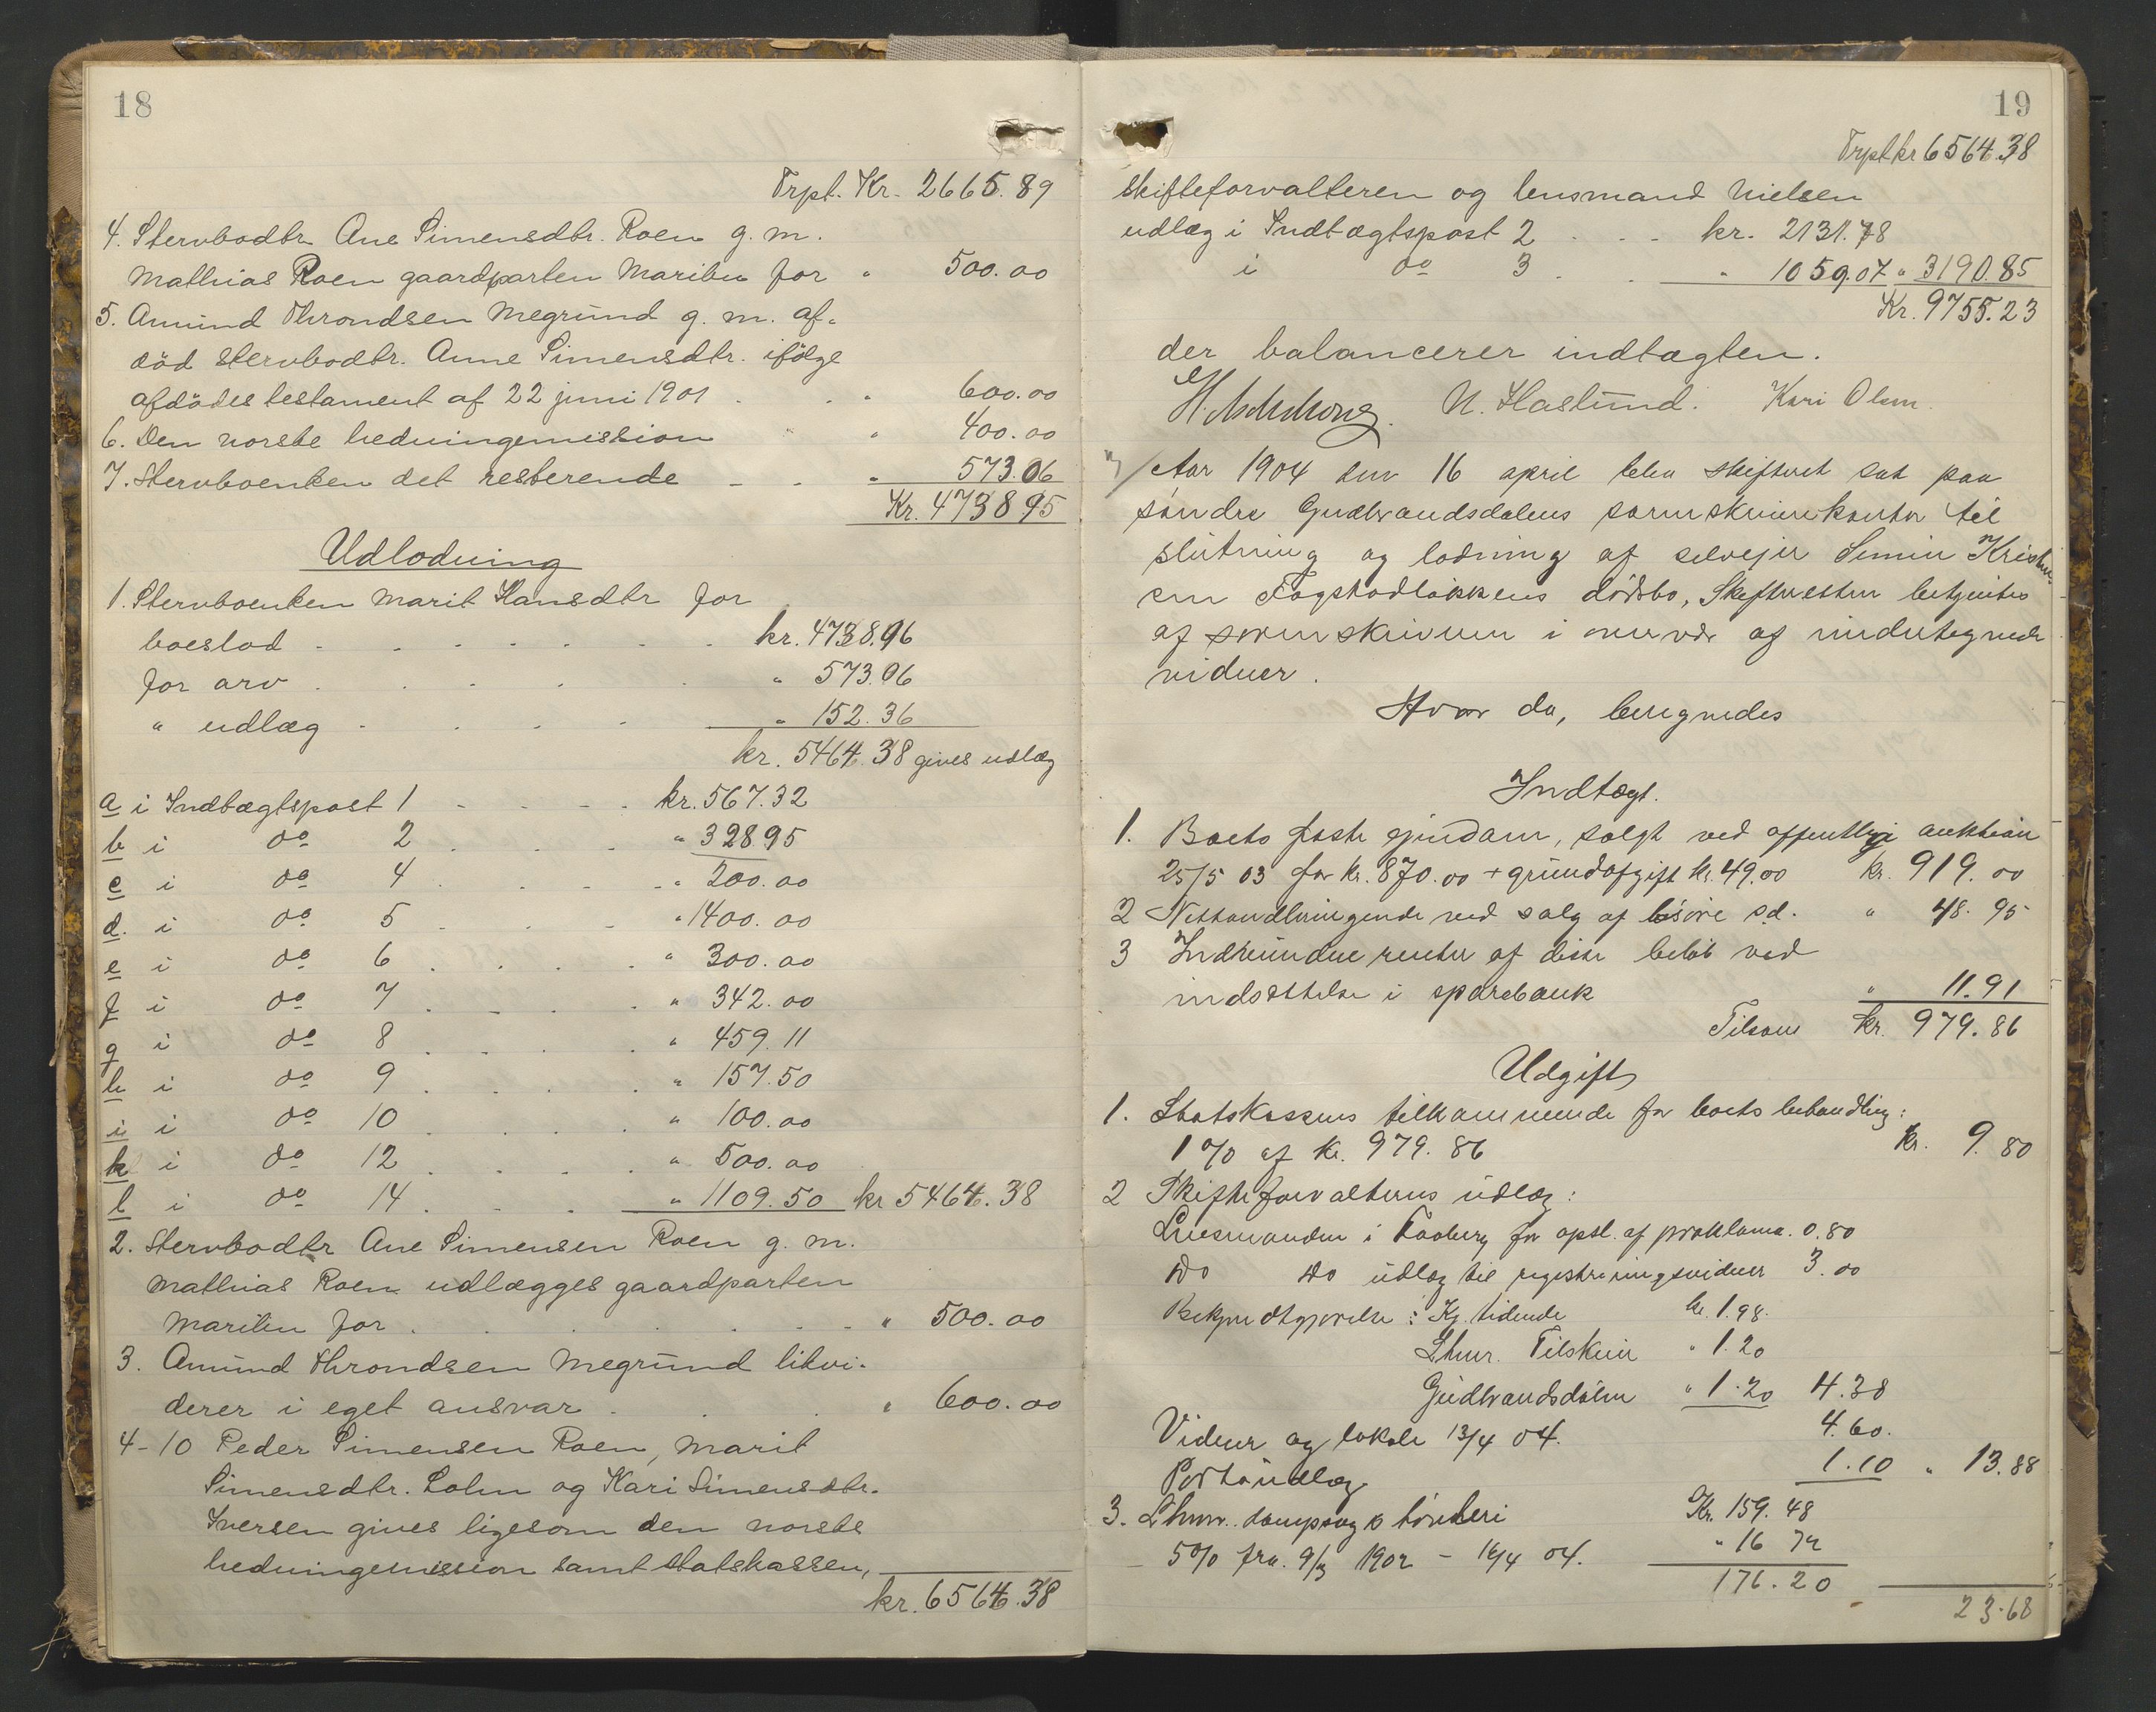 18
Trpt. Kr. 2665.89
4. Stervbodtr Ane Simensdtr. Roen g. m.
Mathias Roen gaardparten Maribu for " 500.00
5. Amund Throndsen Megrund g. m. af-
död stervbodtr. Anne Simensdtr. ifölge
afdödes testament af 22 juni 1901 . . " 600.00
6. Den norske hedningemission " 400.00
7. Stervboenken det resterende - - " 573.06
Kr. 4738.95
Udlodning
1. Stervboenken Marit Hansdtr for
boeslod . . . . . . kr. 4738.96
for arv . . . . . " 573.06
" udlæg . . . . " 152.36
kr. 5464.38 gives udlæg
a i Indtægtspost 1 - - - . kr. 567.32
b i do 2 . . . . " 328.95
c i do 4 . . . . " 200.00
d. i do 5 . . . " 1400.00
e i do 6 . . . . " 300.00
f i do 7 . . . . " 342.00
g i do 8 . . . . " 459.11
h i do 9 . . . . " 157.50
i i do 10 . . . . " 100.00
k i do 12 . . . . " 500.00
l i do 14 . . . " 1109.50 kr 5464.38
2. Stervbodtr Ane Simensen Roen g. m.
Mathias Roen udlægges gaardparten
Maribu for . . . . . . " 500.00
3. Amund Throndsen Megrund likvi-
derer i eget ansvar . . . " 600.00
4-10 Peder Simensen Roen, Marit
Simensdtr. Holm og Kari Simensdtr.
Iversen gives ligesom den norske
hedningemission samt statskassen,
kr. 6564.38
19
Trpt kr 6564.38
skifteforvalteren og lensmand Nielsen
udlæg i Indtægtspost 2 . . . kr. 2131.78
i do 3 . . " 1059.07 " 3190.85
Kr. 9755.23
der balancerer indtægten.
N. Haslund. Kari Olsen
Aar 1904 den 16 april blev skifteret sat paa
søndre Gudbrandsdalens sorenskriverkontor til
slutning og lodning af selveier Simen Kristen-
sen Fogstadløkkens dödsbo, Skifteretten betjentes
af sorenskriveren i overvær af undertegnede
vidner.
Hvor da, beregnedes
Indtægt.
1. Boets faste eiendom, solgt ved offentlig auktion
25/5 03 for kr. 870.00 + grundafgift kr. 49.00 kr. 919.00
2 Nettoudbringende ved salg af løsöre s.d. " 48.95
3 Indvundne renter af disse belöb ved
indsættelse i sparebank " 11.91
Tilsam kr. 979.86
Udgift
1. Statskassens tilkommende for boets behandling:
1 % af kr. 979.86 kr. 9.80
2 Skifteforvalterens udlæg:
Lensmanden i Faaberg for opsl. af proklama. 0.80
Do Do udlæg til registreringsvidner 3.00
Bekjendtgjørelse: Kr. tidende kr. 1.98.
Lhmr. Tilskuer " 1.20
Gudbrandsdølen " 1.20 4.38
Vidner og lokale 13/4 04. 4.60.
Portoudlæg 1.10 " 13.88
3. Lhmr. dampsag & høvleri Kr. 159.48
5% fra 9/3 1902 - 16/4 04. " 16 72
176.20
23.68